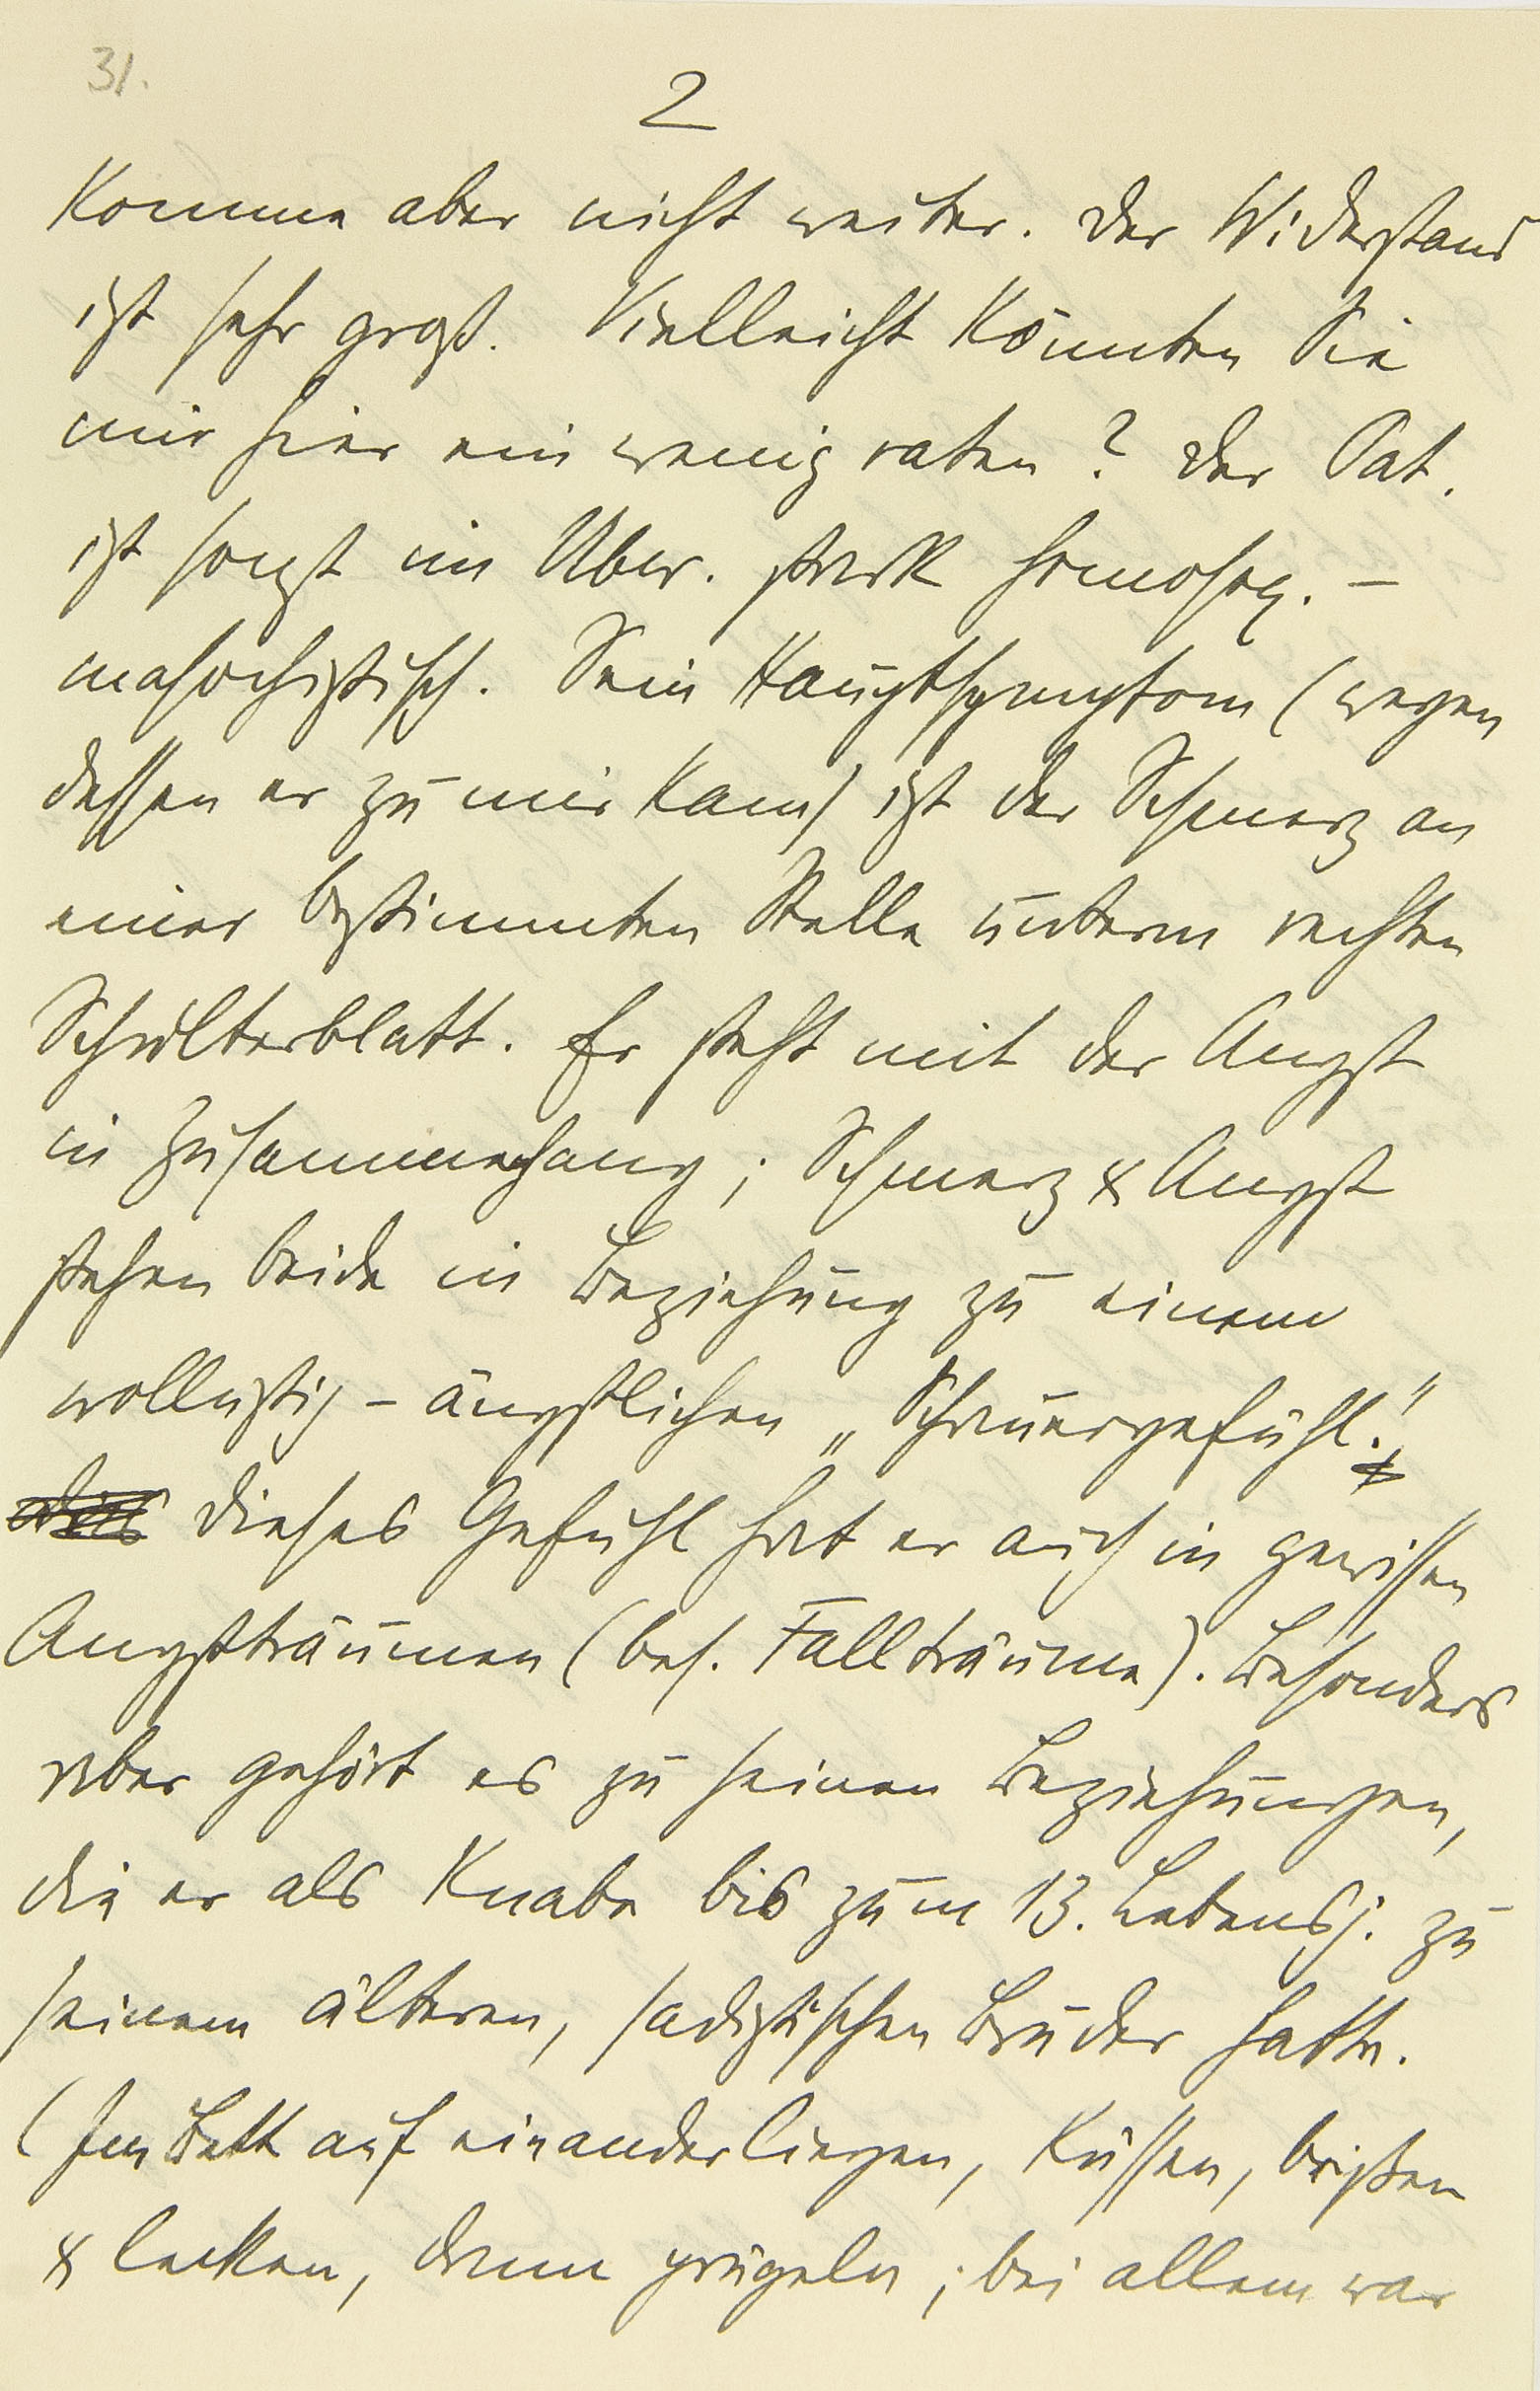 31.
2
komme aber nicht weiter. Der Widerstand
ist sehr groß. Vielleicht könnten Sie
mir hier ein wenig raten? Der Pat.
ist sonst im Ubw. stark homosex. –
masochistisch. Sein Hauptsymptom (wegen
dessen er zu mir kam) ist der Schmerz an
einer bestimmten Stelle unterm rechten
Schulterblatt. Er steht mit der Angst
in Zusammenhang; Schmerz & Angst
stehen beide in Beziehung zu einem
wollustig-ängstlichen „Schauergefühl."
Dieses Gefühl hat er auch in gewissen
Angstträumen (bes. Fallträume). Besonders
aber gehört es zu seinen Beziehungen,
die er als Knabe bis zum 13. Lebensj. zu
seinem älteren, sadistischen Bruder hatte.
(Im Bett auf einanderliegen, küssen, beißen
& lecken, dann prügeln; bei allem war